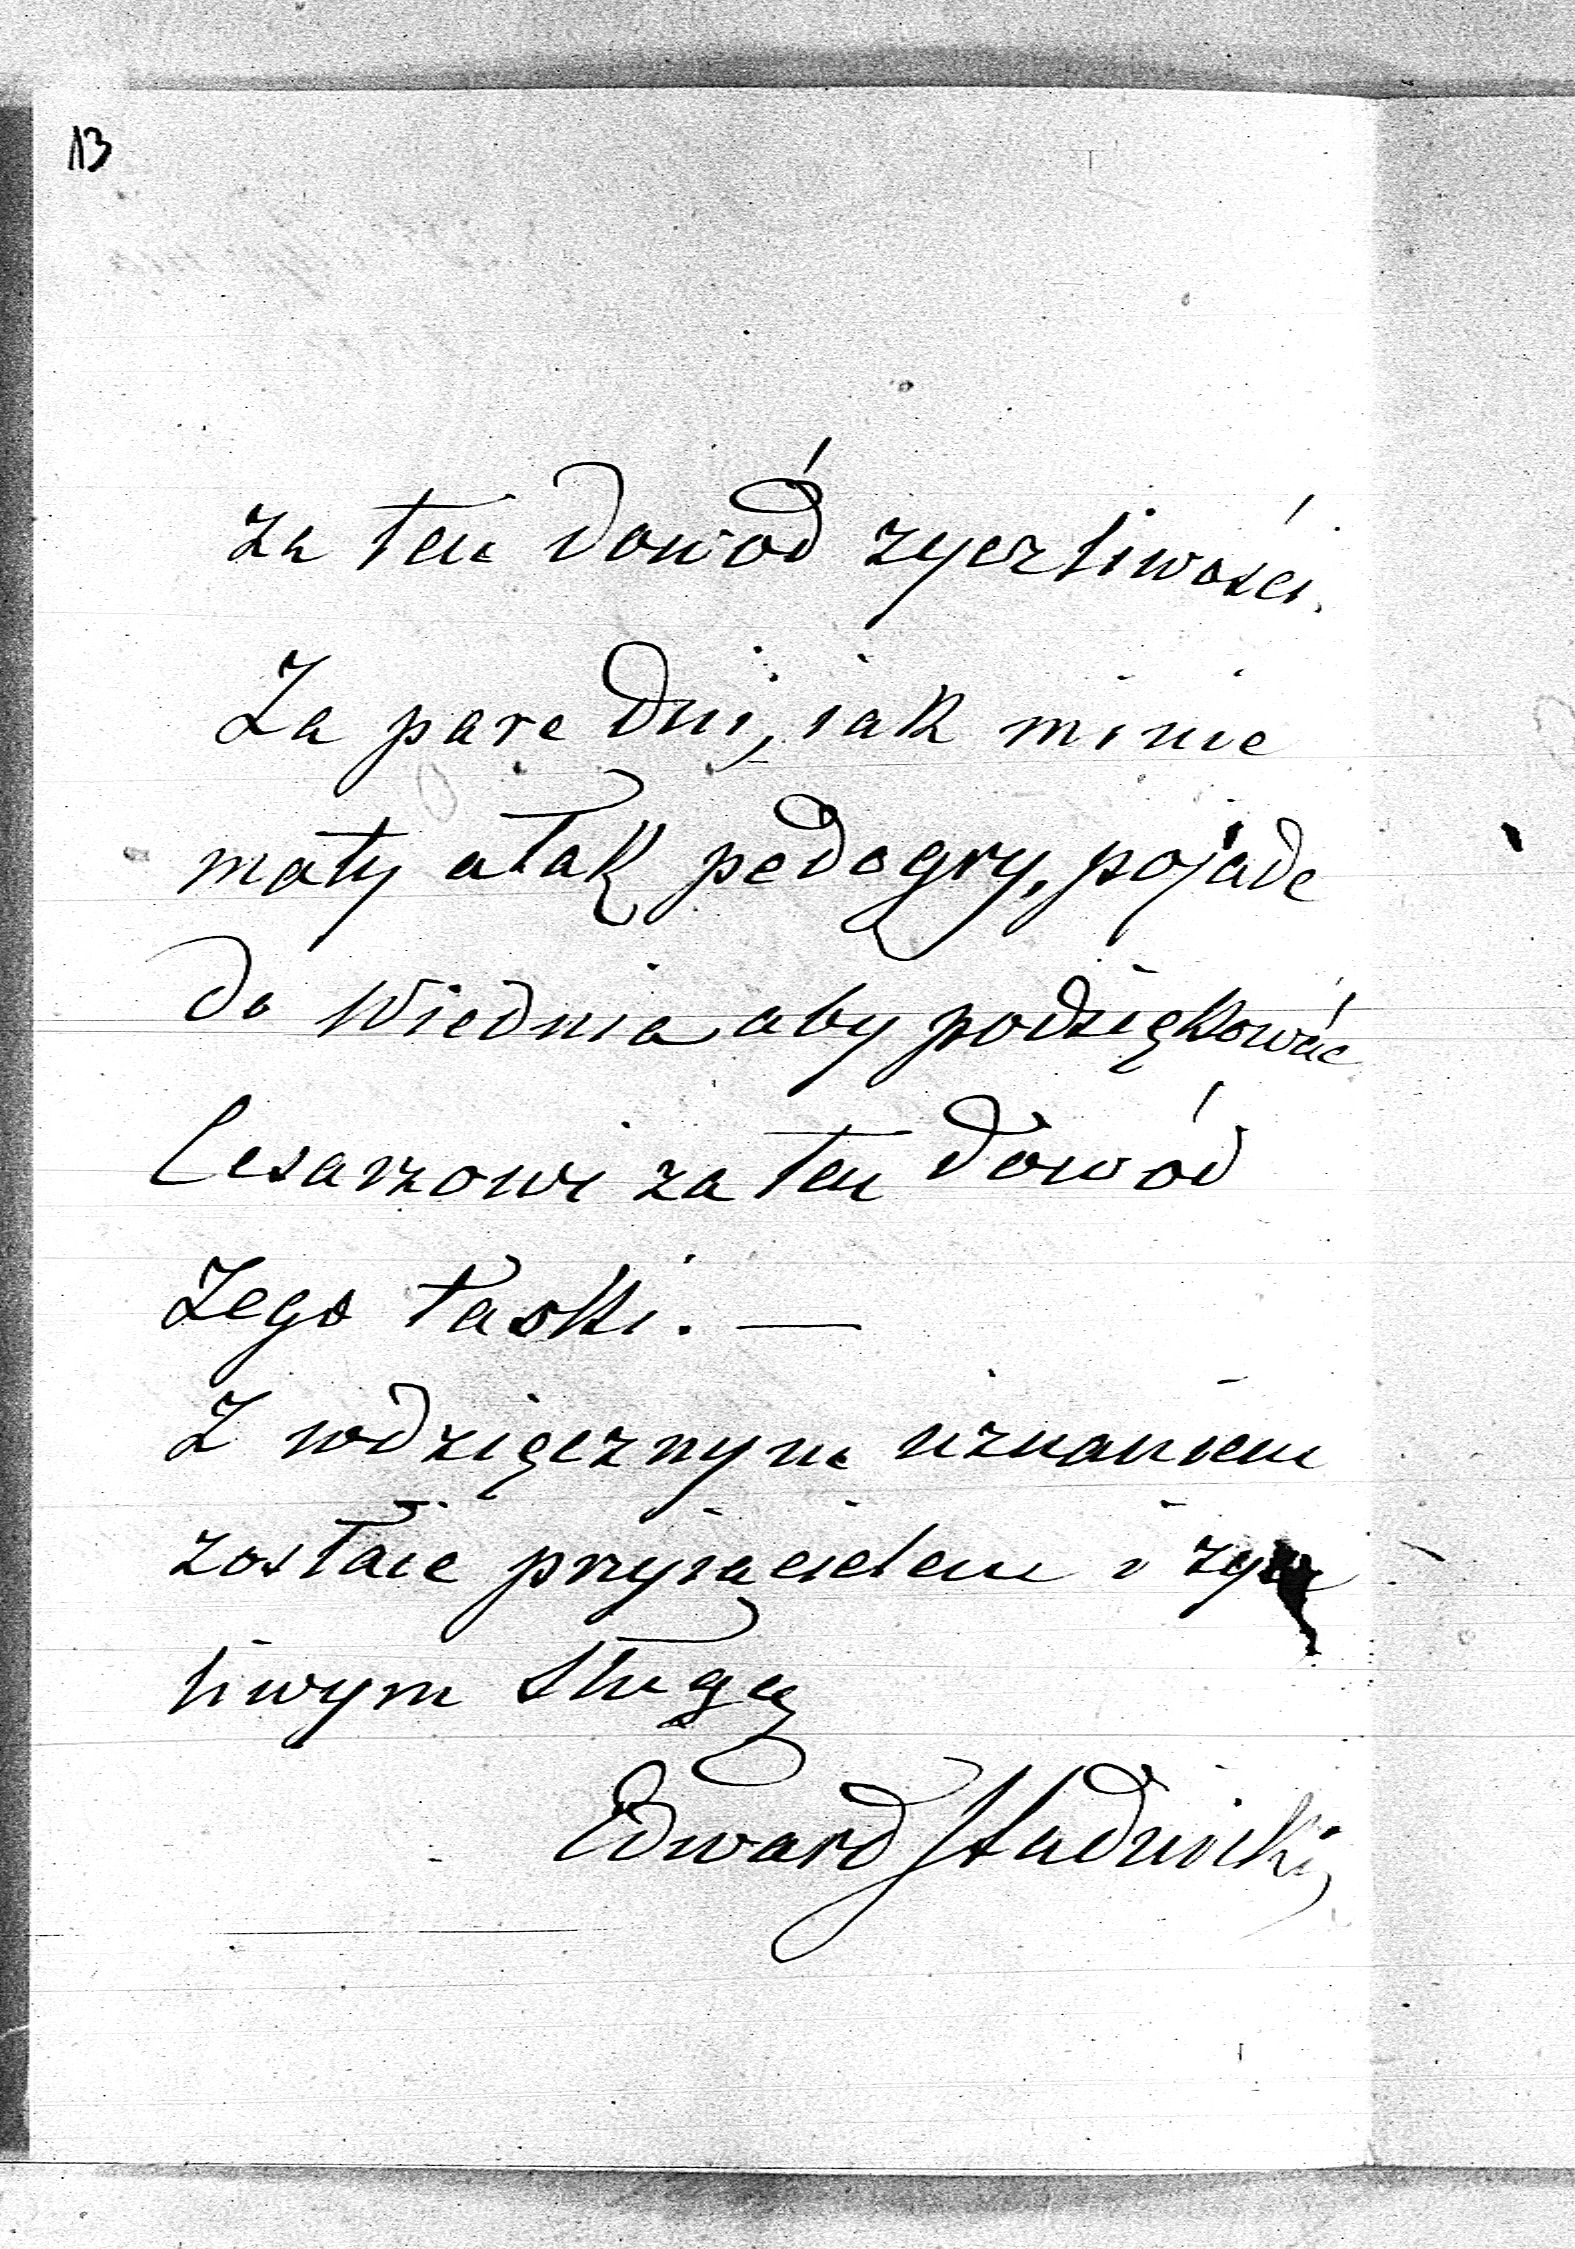 13
za ten dowód zyczliwości.
Za pare dni, iak minie
mały atak pedogry, pojade
do Wiednia aby podziękować
Cesarzowi za ten dowód
Jego łaski. —
Z wdzięcznym uznaniem
zostaie przyiacielem i zycz
liwym sługą
Edward Stadnicki